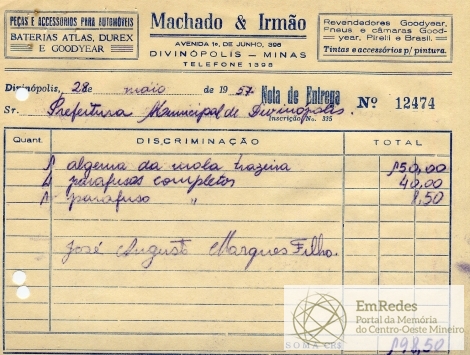 PEÇAS E ACCESSORIOS PARA AUTOMÓVEIS
BATERIAS ATLAS, DUREX
E GOODYEAR
Machado & Irmão
AVENIDA 1º. DE JUNHO, 398
DIVINÓPOLIS — MINAS
TELEFONE 1398
Revendedores Goodyear,
Pneus e câmaras Good-
year, Pirelli e Brasil.
Tintas e accessórios p/ pintura.
Divinópolis, 28 de maio de 1957
Nota de Entrega
Nº 12474
Sr. Prefeitura Municipal de Divinópolis.
Inscrição No. 335
Quant. DISCRIMINAÇÃO TOTAL
1 algema da mola trazeira 150,00
4 parafusos completos 40,00
1 parafuso " 8,50
José Augusto Marques Filho.
EmRedes
Portal da Memória
do Centro-Oeste Mineiro
SOMA CR$ 198,50